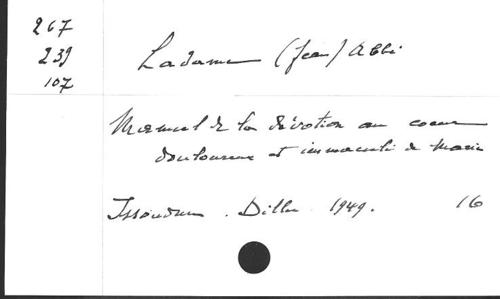 267
239
107
Ladame (Jean) Abbé
Manuel de la dévotion au coeur
douloureux et immaculé de Marie
Issoudun. Dillen. 1949. 16